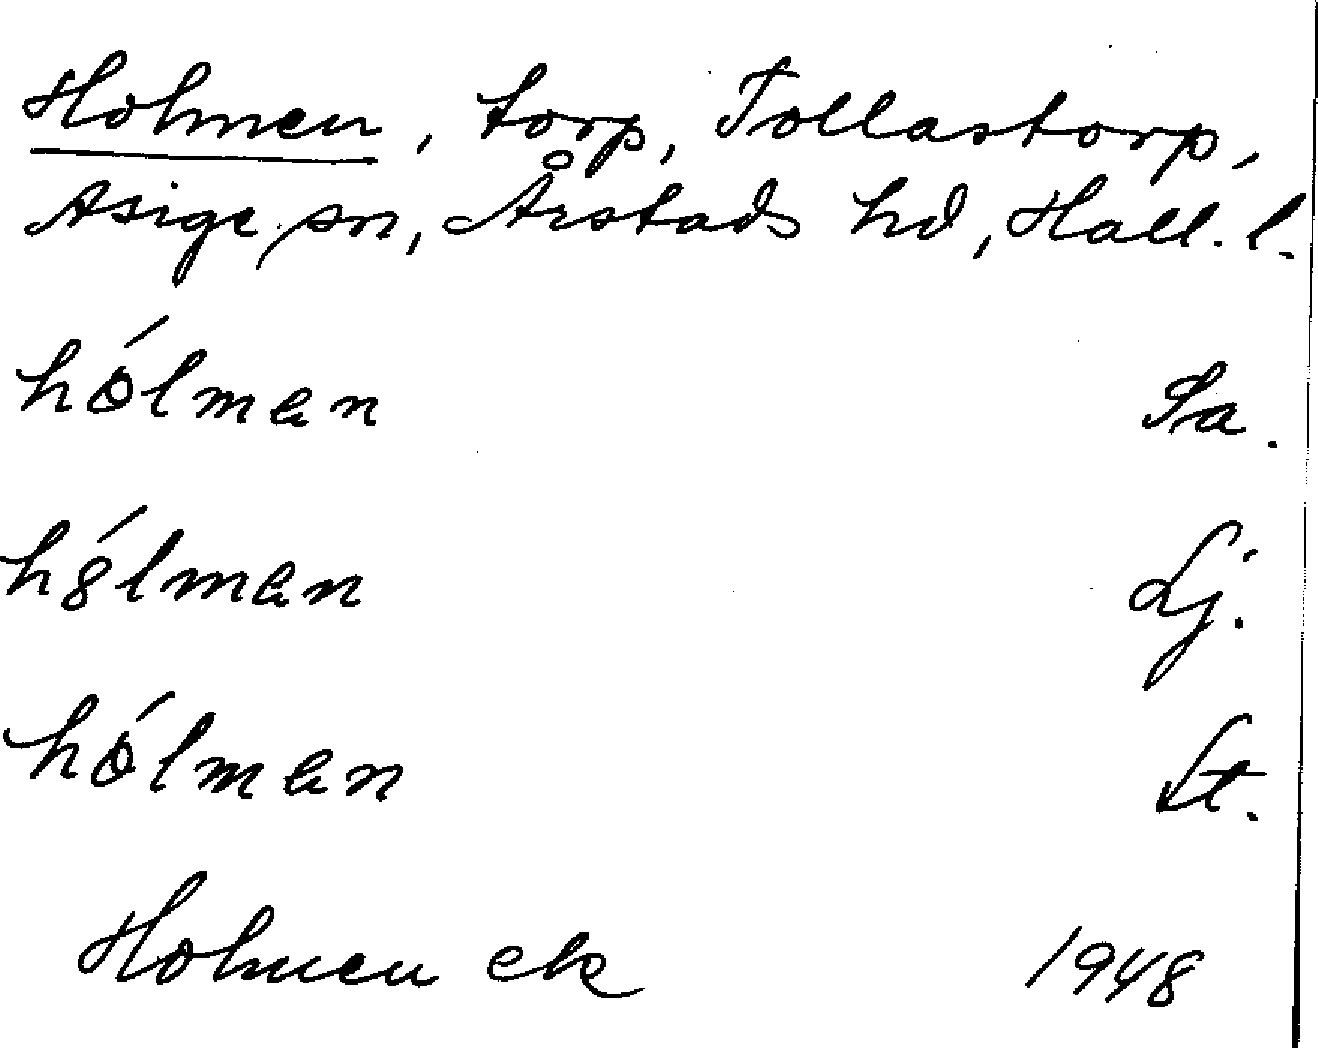 Holmen, torp, Tollastorp,
Asige sn, Årstads hd, Hall. l.
hólmɘn Sa.
hólmɘn Lj.
hólmɘn St.
Holmen ek 1948